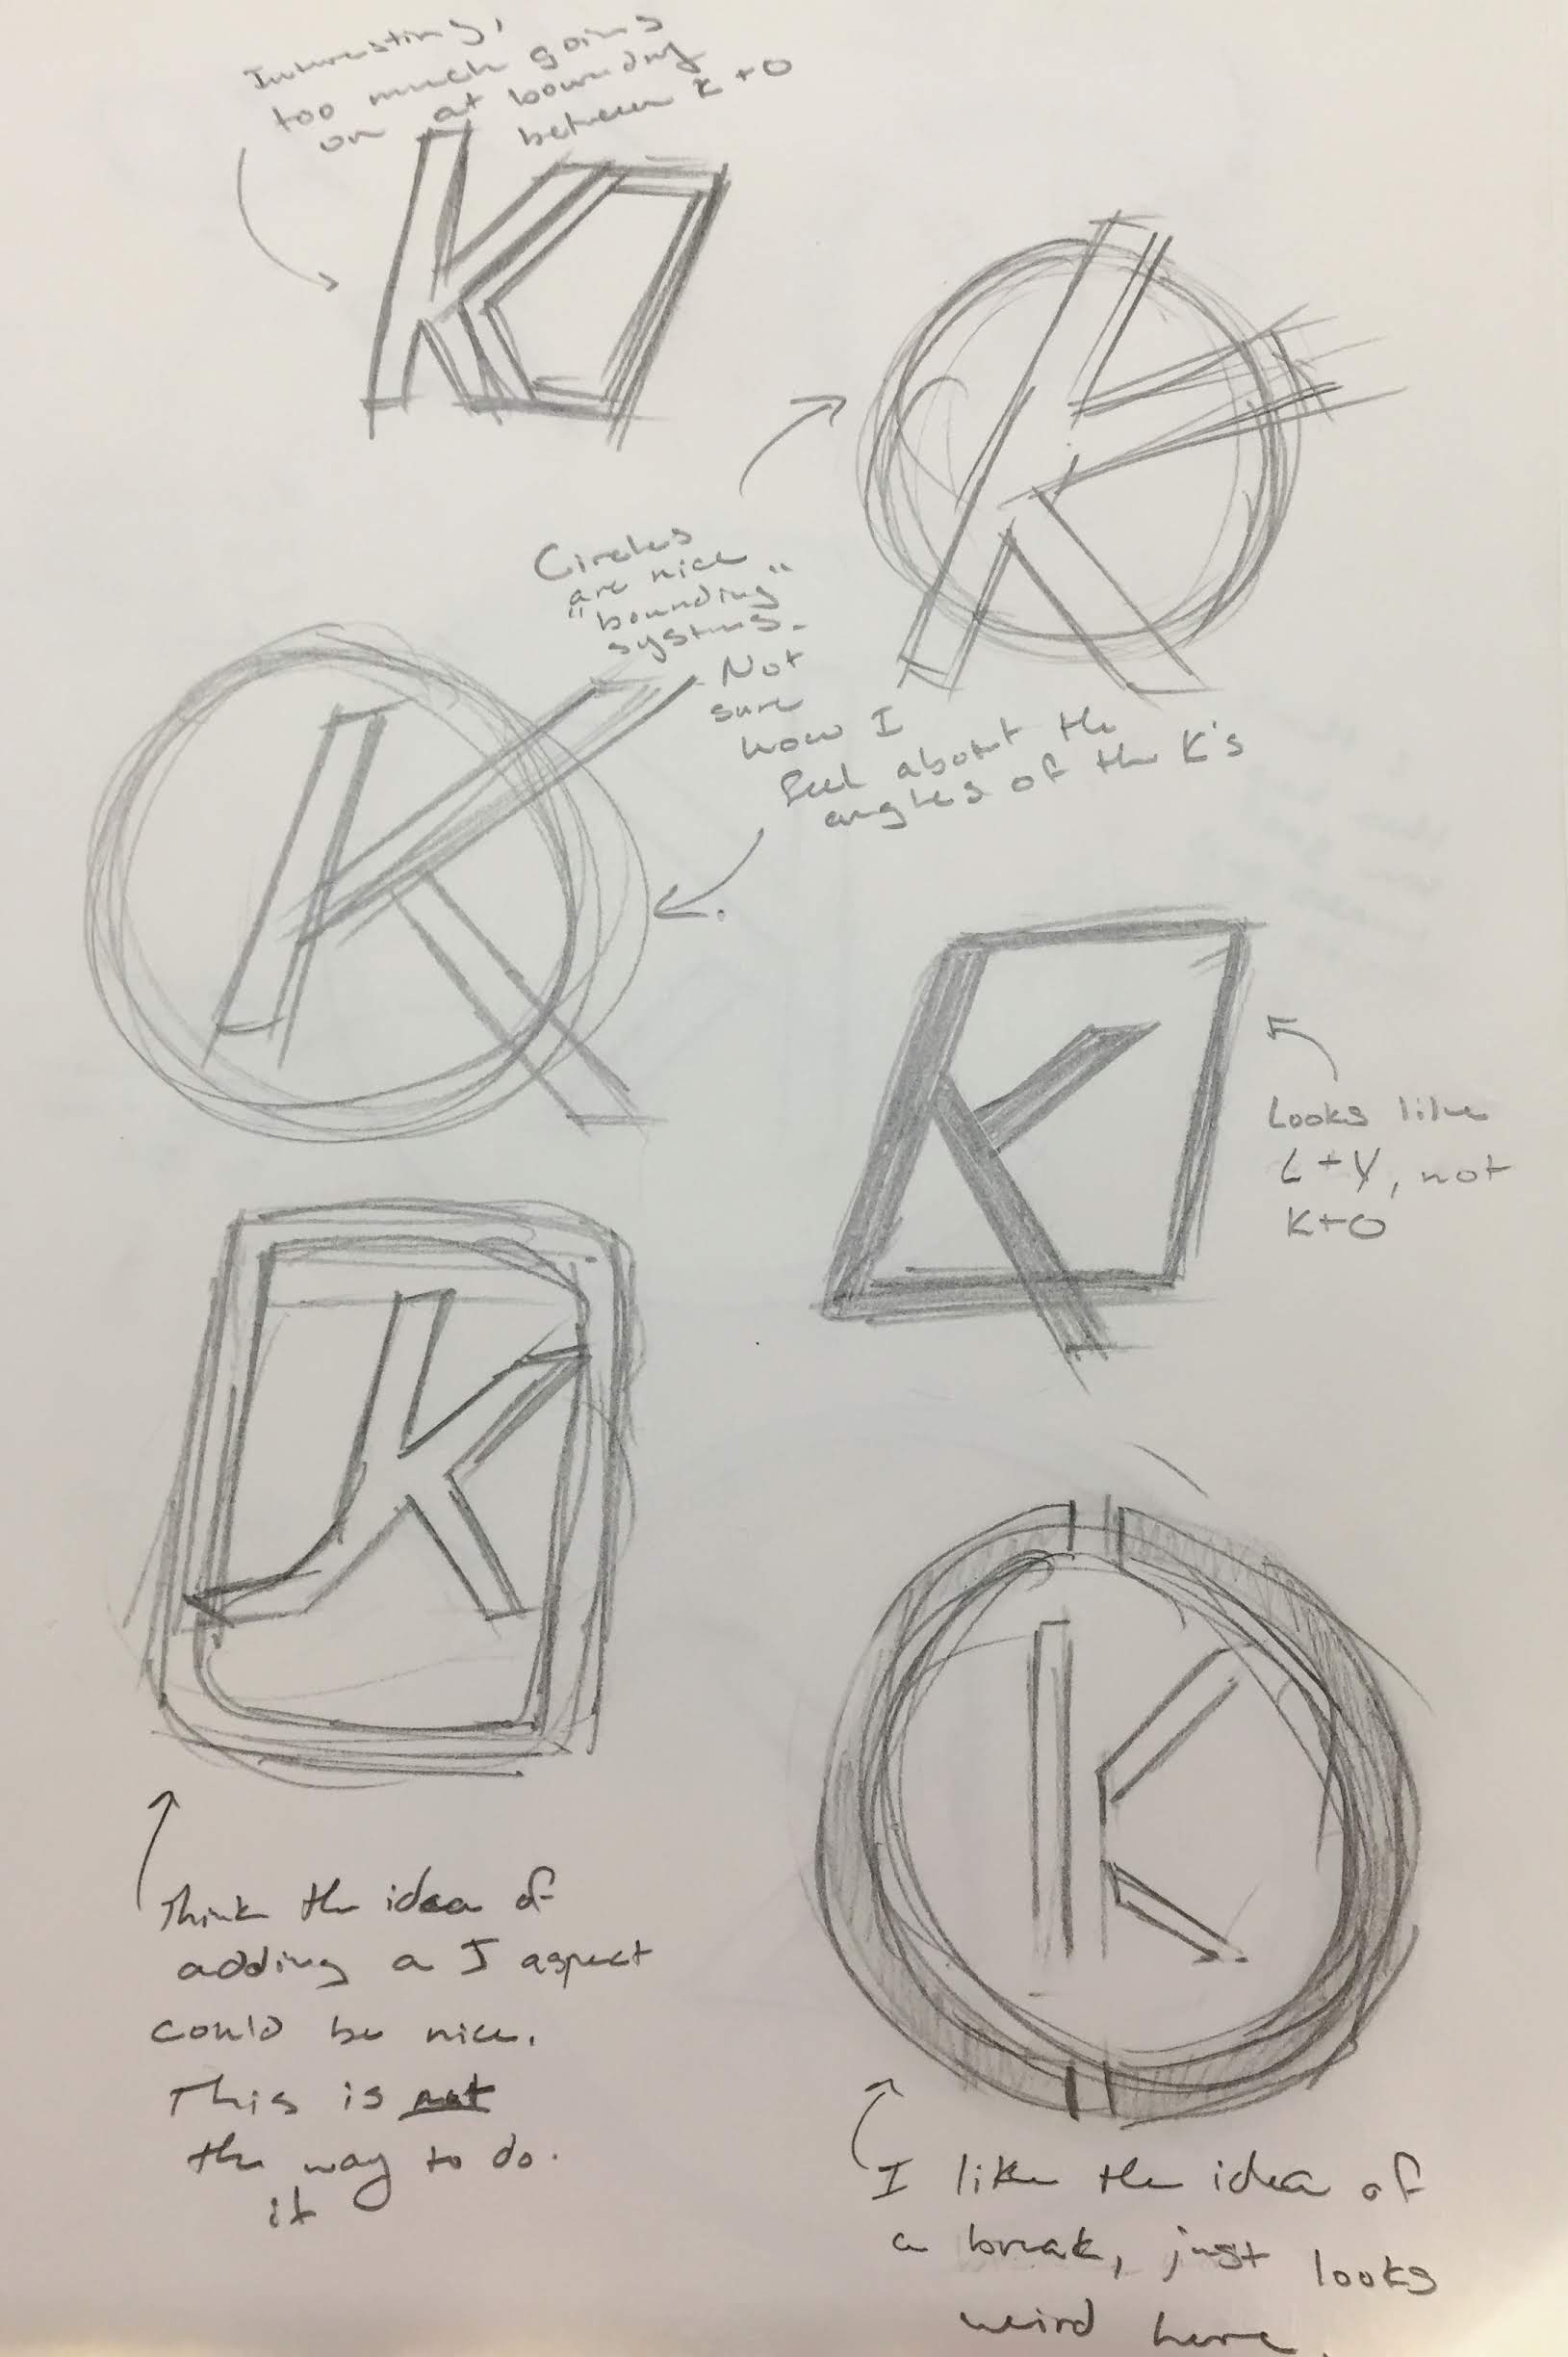 Interesting,
too much going
on at bounding
between K + O
Circles
are nice
"bounding"
systems.
Not
sure
how I
feel about the
angles of the K's
Looks like
L + Y, not
K + O
Think the idea of
adding a J aspect
could be nice.
This is not
the way to do.
it
I like the idea of
a break, just looks
weird here.